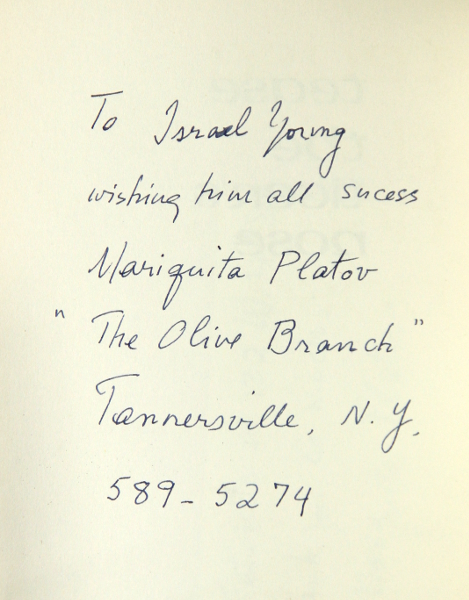 To Israel Young
wishing him all sucess
Mariquita Platov
"The Olive Branch"
Tannersville, N.Y.
589-5274